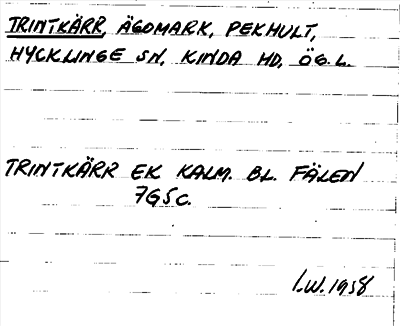 TRINTKÄRR, ÄGOMARK, PEKHULT,
HYCKLINGE SN, KINDA HD, ÖG.L.
TRINTKÄRR EK KALM. BL. FÄLEN
7G5c.
I.W. 1958